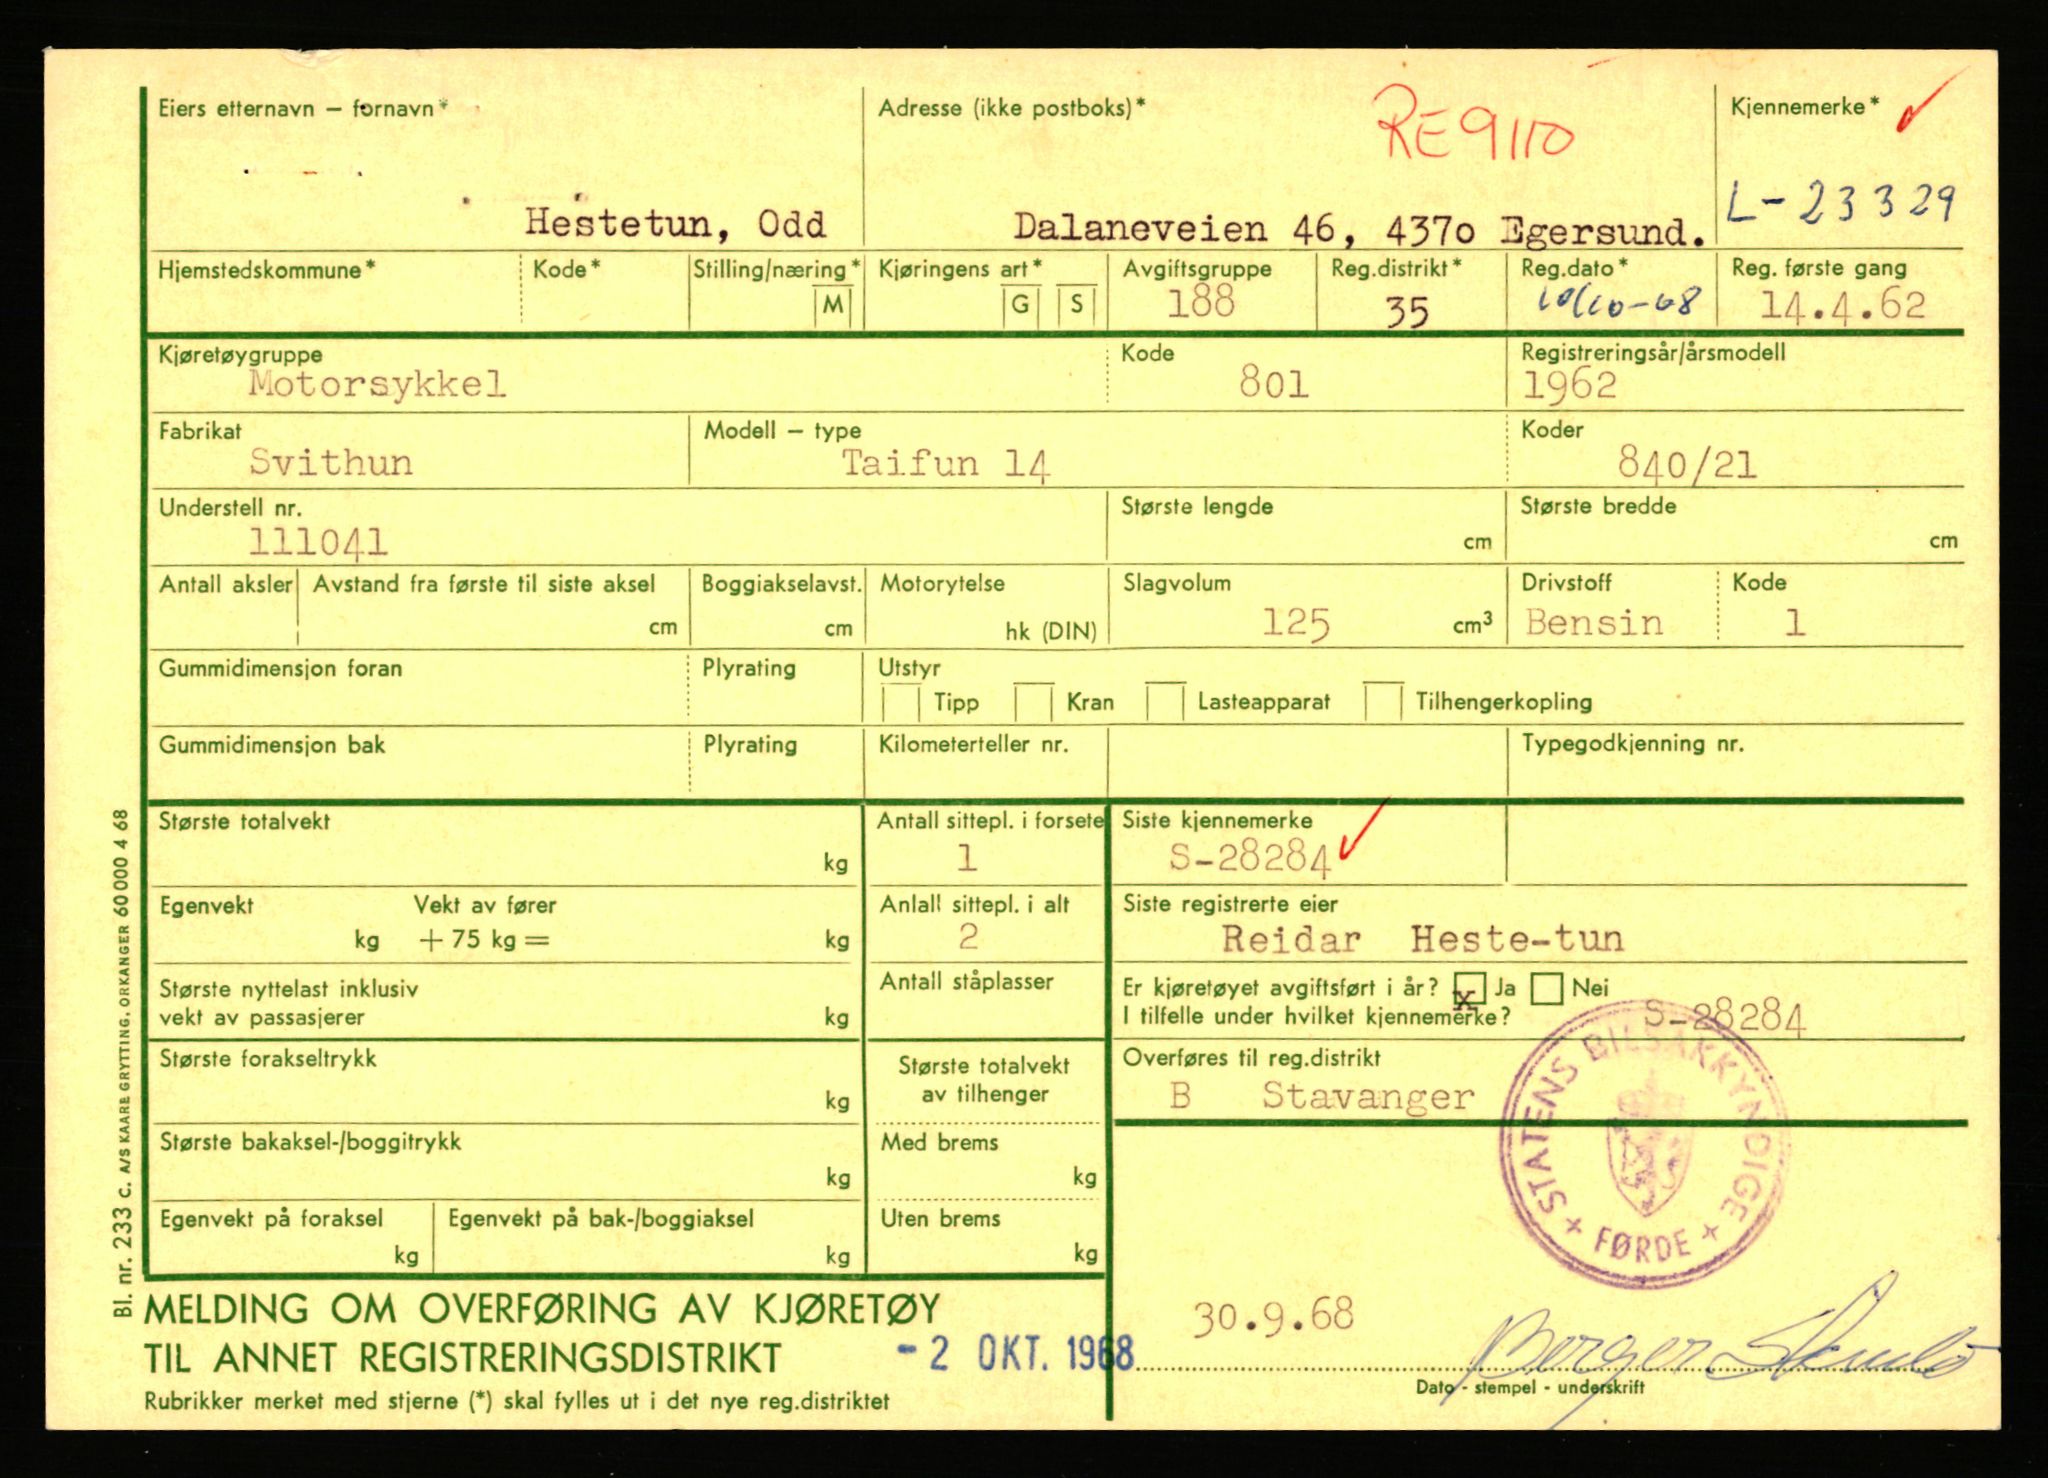 Eiers etternavn – fornavn*
Adresse (ikke postboks)*
RE9110
Kjennemerke*
Hestetun, Odd
Dalaneveien 46, 4370 Egersund.
L-23329
Hjemstedskommune*
Kode*
Stilling/næring*
M
Kjøringens art*
G
S
Avgiftsgruppe
188
Reg.distrikt*
35
Reg.dato*
10/10-68
Reg. første gang
14.4.62
Kjøretøygruppe
Motorsykkel
Kode
801
Registreringsår/årsmodell
1962
Fabrikat
Svithun
Modell – type
Taifun 14
Koder
840/21
Understell nr.
111041
Største lengde
cm
Største bredde
cm
Antall aksler
Avstand fra første til siste aksel
cm
Boggiakselavst.
cm
Motorytelse
hk (DIN)
Slagvolum
125 cm³
Drivstoff
Bensin
Kode
1
Gummidimensjon foran
Plyrating
Utstyr
Tipp
Kran
Lasteapparat
Tilhengerkopling
Gummidimensjon bak
Plyrating
Kilometerteller nr.
Typegodkjenning nr.
Største totalvekt
kg
Antall sittepl. i forsete
1
Siste kjennemerke
S-28284
Egenvekt
kg
Vekt av fører
+ 75 kg =
kg
Anlall sittepl. i alt
2
Siste registrerte eier
Reidar Heste-tun
Største nyttelast inklusiv
vekt av passasjerer
kg
Antall ståplasser
Er kjøretøyet avgiftsført i år? x Ja Nei
I tilfelle under hvilket kjennemerke? S-28284
Største forakseltrykk
kg
Største totalvekt
av tilhenger
Overføres til reg.distrikt
B Stavanger
Største bakaksel-/boggitrykk
kg
Med brems
kg
Egenvekt på foraksel
kg
Egenvekt på bak-/boggiaksel
kg
Uten brems
kg
STATENS BILSAKKYNDIGE
FØRDE
MELDING OM OVERFØRING AV KJØRETØY
TIL ANNET REGISTRERINGSDISTRIKT
- 2 OKT. 1968
30.9.68
Berger
Dato - stempel - underskrift
Rubrikker merket med stjerne (*) skal fylles ut i det nye reg.distriktet
Bl. nr. 233 C. A/S KAARE GRYTTING, ORKANGER 60 000 4 68